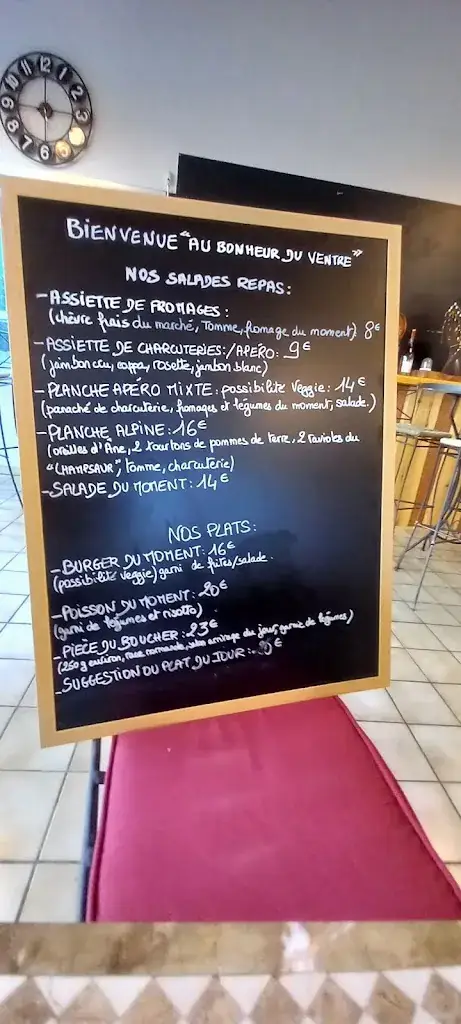 12 1 2 3 6 7 8 9 10 11
BIENVENUE "AU BONHEUR DU VENTRE"
NOS SALADES REPAS:
-ASSIETTE DE FROMAGES:
(chèvre frais du marché, Tomme, fromage du moment) 8€
-ASSIETTE DE CHARCUTERIES:/APERO: 9€
(jambon cru, coppa, rosette, jambon blanc)
-PLANCHE APÉRO MIXTE: possibilité Veggie: 14€
(panaché de charcuterie, fromages et légumes du moment, salade.)
-PLANCHE ALPINE: 16€
(oreilles d'Âne, 2 tourtons de pommes de terre, 2 ravioles du
"CHAMPSAUR", tomme, charcuterie)
-SALADE DU MOMENT: 14€
NOS PLATS:
-BURGER DU MOMENT: 16€
(possibilité veggie) garni de frites/salade.
-POISSON DU MOMENT: 20€
(garni de légumes et risotto)
-PIÈCE DU BOUCHER: 23€
(250 g environ, race normande, selon arrivage du jour, garnie de légumes)
-SUGGESTION DU PLAT DU JOUR: